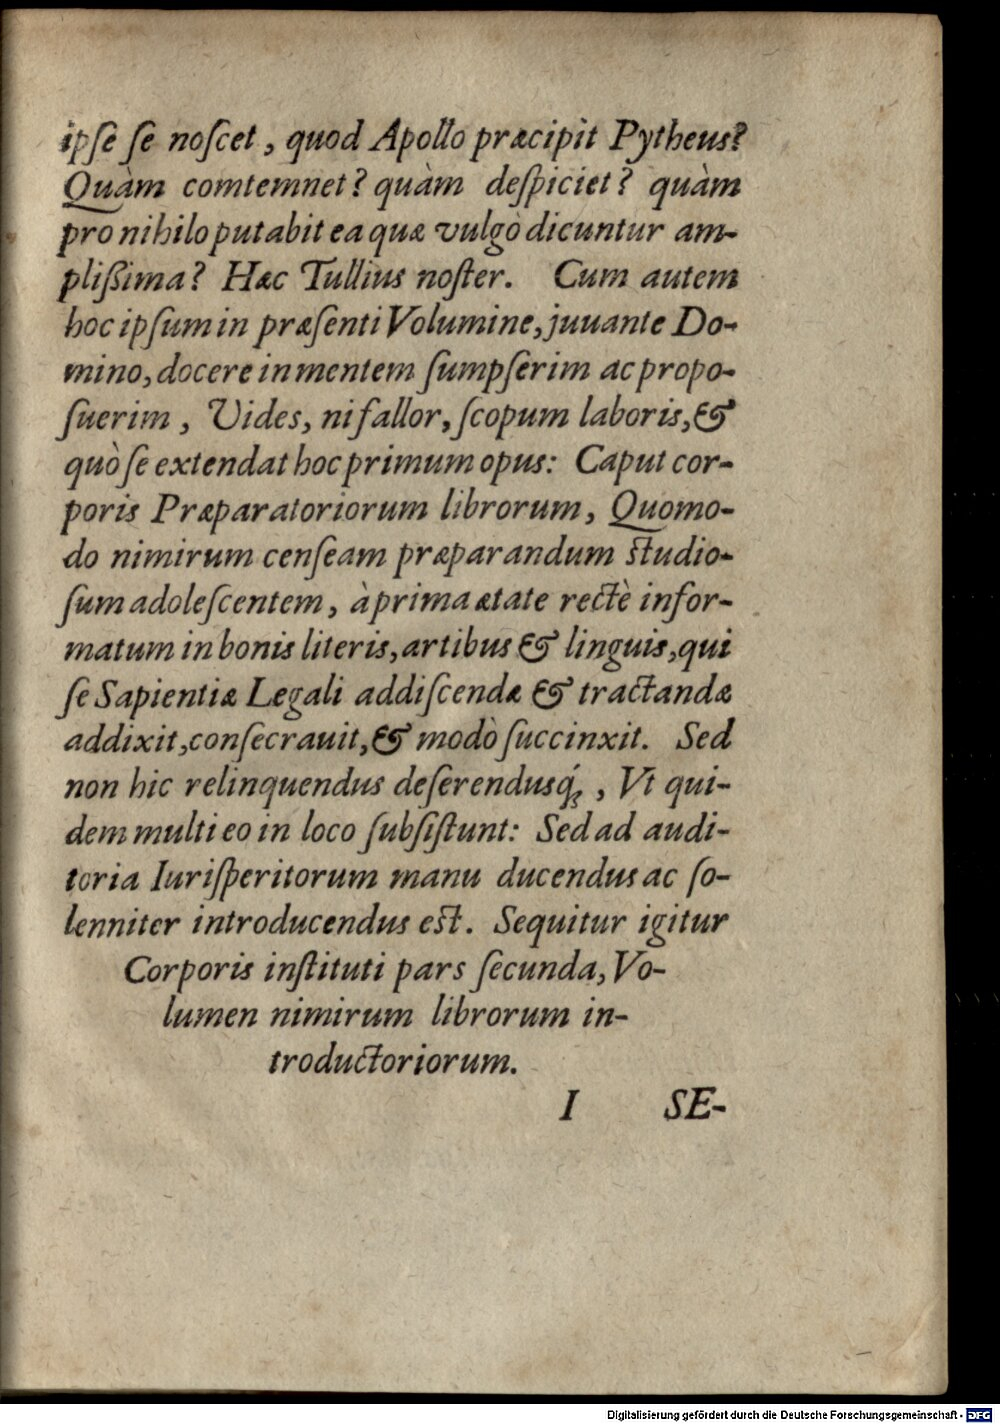 ipſe ſe noſcet, quod Apollo præcipit Pytheus?
Quàm comtemnet? quàm deſpiciet? quàm
pro nihilo putabit ea quæ vulgò dicuntur am-
plißima? Hæc Tullius noſter. Cum autem
hoc ipſum in præſenti Volumine, juuante Do-
mino, docere in mentem ſumpſerim ac propo-
ſuerim, Vides, ni fallor, ſcopum laboris, &
quò ſe extendat hoc primum opus: Caput cor-
poris Præparatoriorum librorum, Quomo-
do nimirum cenſeam præparandum ſtudio-
ſum adoleſcentem, à prima ætate rectè infor-
matum in bonis literis, artibus & linguis, qui
ſe Sapientiæ Legali addiſcendæ & tractandæ
addixit, conſecrauit, & modò ſuccinxit. Sed
non hic relinquendus deſerendusq́;, Vt qui-
dem multi eo in loco ſubſiſtunt: Sed ad audi-
toria Iuriſperitorum manu ducendus ac ſo-
lenniter introducendus eſt. Sequitur igitur
Corporis inſtituti pars ſecunda, Vo-
lumen nimirum librorum in-
troductoriorum.
I SE-
Digitalisierung gefördert durch die Deutsche Forschungsgemeinschaft - DFG